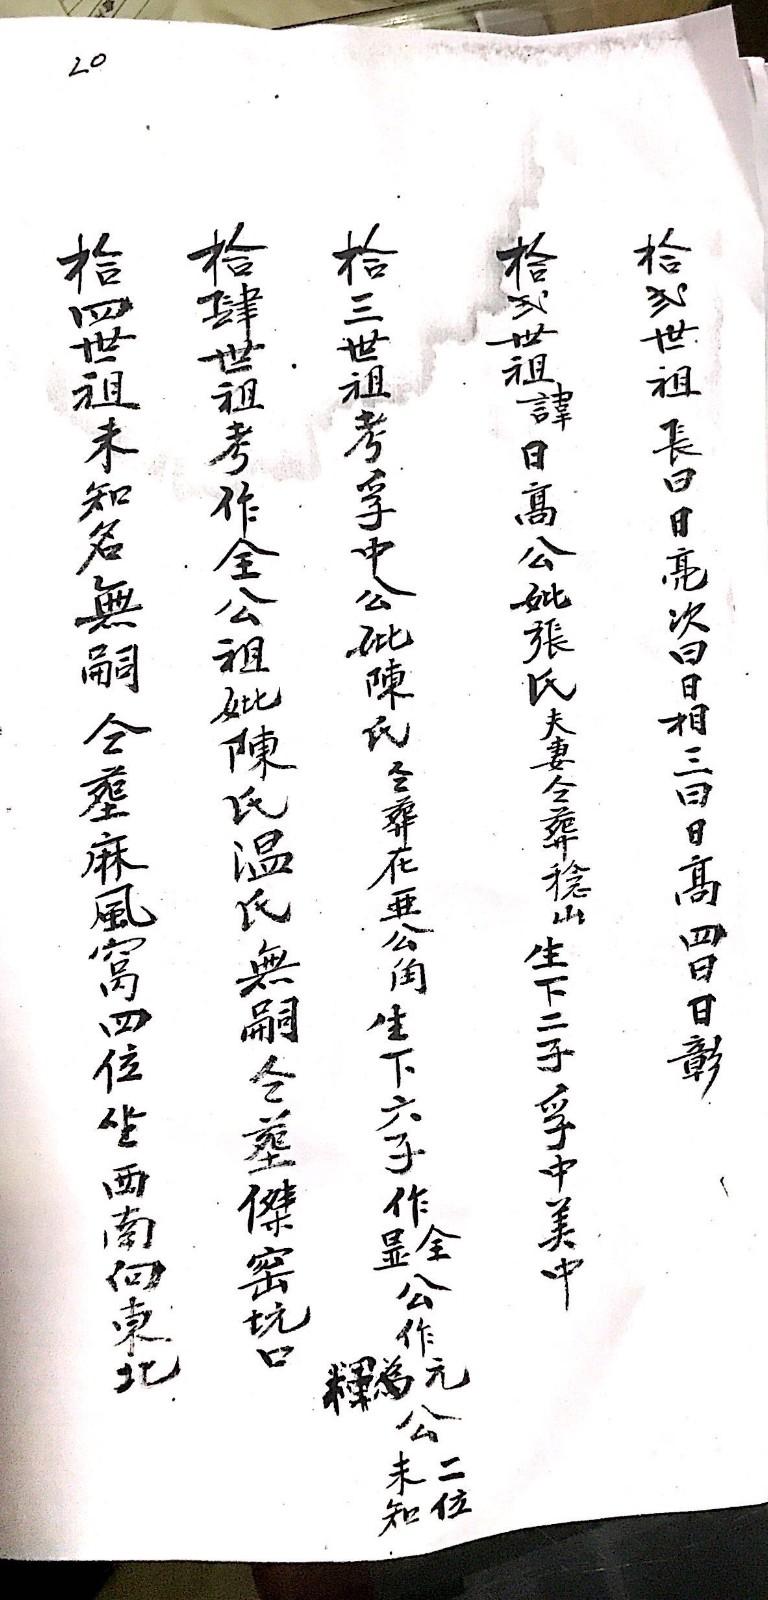 20
拾弍世祖 長曰日亮次曰日相三曰日高四曰日彰
拾弍世祖諱日高公妣張氏夫妻仝葬稔山生下二子孚中美中
拾三世祖考孚中公妣陳氏仝葬在亜公角生下六子作全显公作元為輝公二位未知
拾肆世祖考作全公祖妣陳氏温氏無嗣仝塟傑窑坑口
拾四世祖未知名無嗣仝塟麻風窩四位坐西南向東北